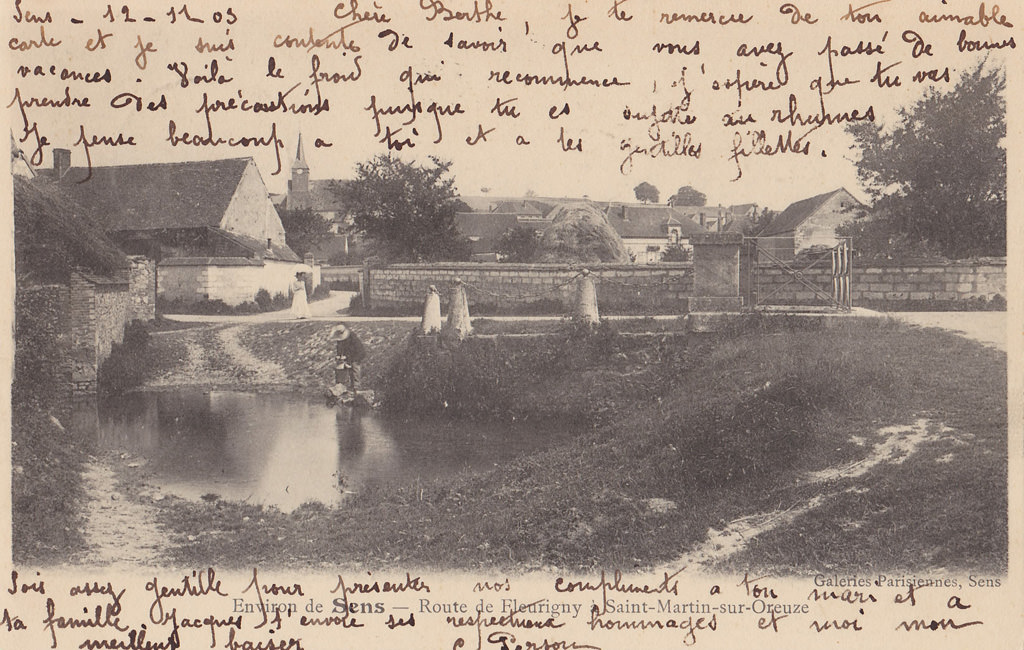 Sens - 12 - 11 03 Chère Berthe, je te remercie de ton aimable
carte et je suis contente de savoir que vous avez passé de bonnes
vacances. Voilà le froid qui recommence, j'espère que tu vas
prendre des précautions puisque tu es sujette au rhumes
Je pense beaucoup a toi et a tes gentilles fillettes.
Sois assez gentille pour présenter nos compliments a ton mari et a
Galeries Parisiennes, Sens
Environ de Sens — Route de Fleurigny à Saint-Martin-sur-Oreuze
ta famille. Jacques t'envoie ses respectueux hommages et moi mon
meilleur baiser